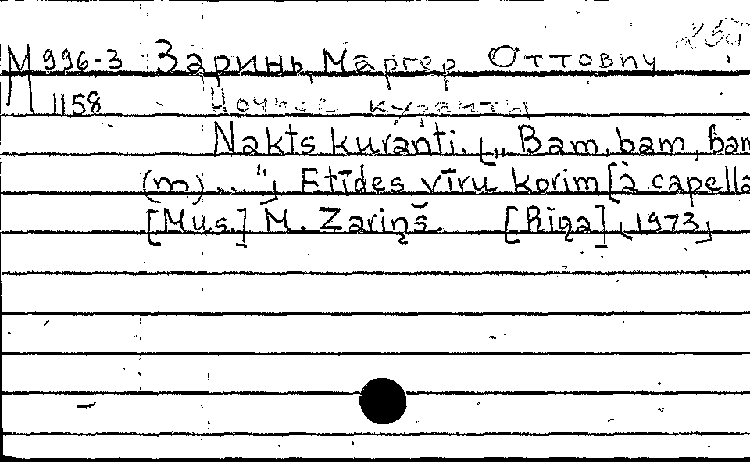 250
М 996-3 Заринь, Маргер Оттович
1158 Ночные куранты
Nakts kuranti. [„Bam, bam, bam
(m)... "] Etīdes vīru korim [à capella
[Mus.] M. Zariņš. [Rīga] [1973]